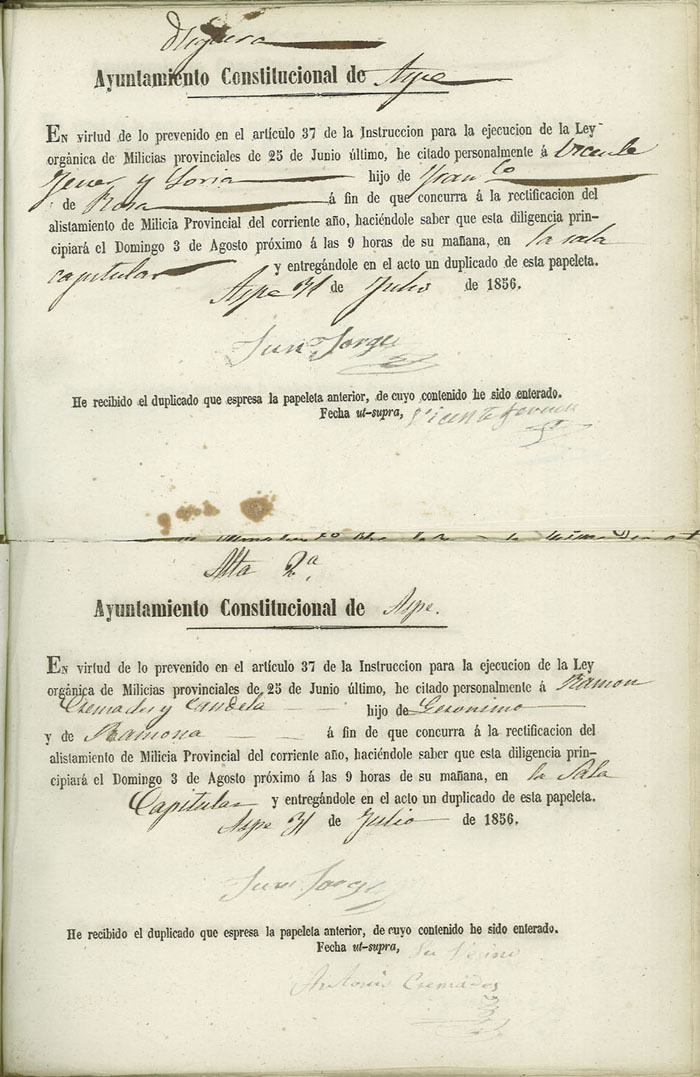 Higuera
Ayuntamiento Constitucional de Aspe
EN virtud de lo prevenido en el artículo 37 de la Instruccion para la ejecucion de la Ley
orgánica de Milicias provinciales de 25 de Junio último, he citado personalmente á Vicente
y Soria hijo de Fran.co
y de Rosa á fin de que concurra á la rectificacion del
alistamiento de Milicia Provincial del corriente año, haciéndole saber que esta diligencia prin-
cipiará el Domingo 3 de Agosto próximo á las 9 horas de su mañana, en la sala
capitular y entregándole en el acto un duplicado de esta papeleta.
Aspe 31 de Julio de 1856.
Jorge
He recibido el duplicado que espresa la papeleta anterior, de cuyo contenido he sido enterado.
Fecha ut-supra, Vicente
Alta 2ª
Ayuntamiento Constitucional de Aspe.
EN virtud de lo prevenido en el artículo 37 de la Instruccion para la ejecucion de la Ley
orgánica de Milicias provinciales de 25 de Junio último, he citado personalmente á Ramon
Cremades y Candela hijo de Geronimo
y de Ramona á fin de que concurra á la rectificacion del
alistamiento de Milicia Provincial del corriente año, haciéndole saber que esta diligencia prin-
cipiará el Domingo 3 de Agosto próximo á las 9 horas de su mañana, en la Sala
Capitular y entregándole en el acto un duplicado de esta papeleta.
Aspe 31 de Julio de 1856.
Jorge
He recibido el duplicado que espresa la papeleta anterior, de cuyo contenido he sido enterado.
Fecha ut-supra, Su Vecino
Antonio Cremades